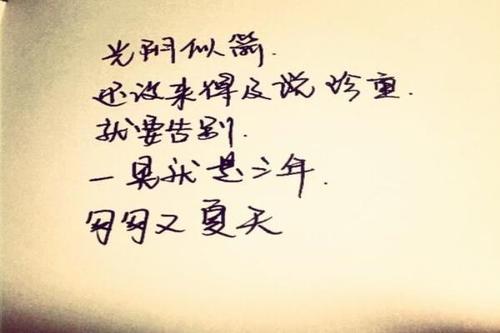 光阴似箭.
还没来得及说珍重.
就要告别.
一晃就是三年.
匆匆又夏天